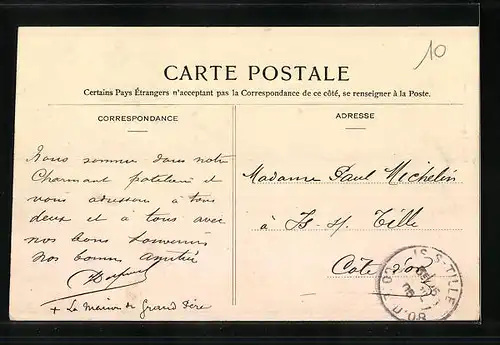 10
CARTE POSTALE
Certains Pays Étrangers n'acceptant pas la Correspondance de ce côté, se renseigner à la Poste.
CORRESPONDANCE
Nous sommes dans notre
Charmant patelin et
vous adressons à tous
deux et à tous avec
nos bons souvenirs
nos bonnes amitiés
+ La Maison du Grand Père
ADRESSE
Madame Paul Michelin
à Is-s/ Tille
Côte d'or
IS-S-TILLE